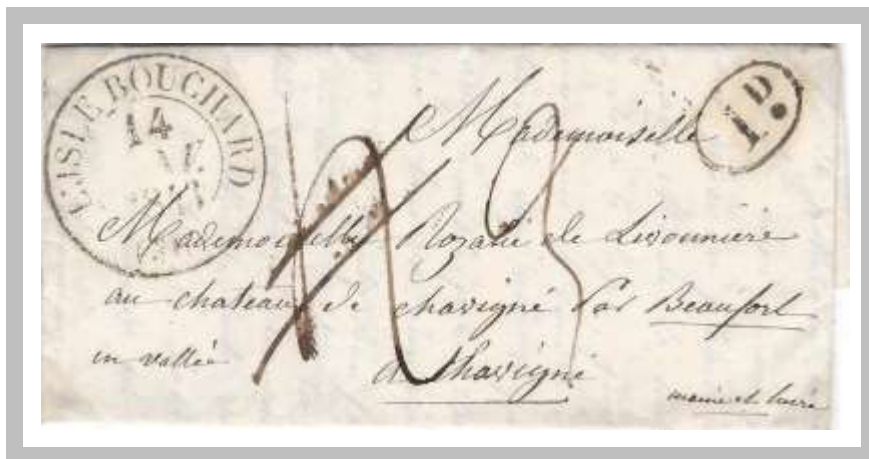 L'ISLE BOUCHARD
14
1 D.
Mademoiselle
Mademoiselle Rozalie de Livonnière
au chateau de chavigné par Beaufort
en vallée
a Chavigné
maine et loire
3